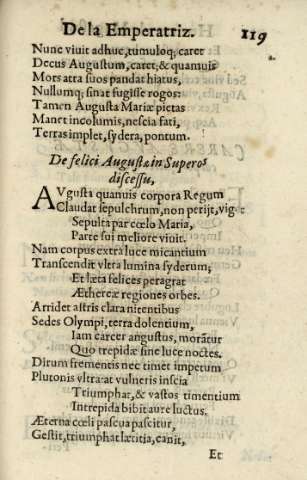 De la Emperatriz. 119
Nunc viuit adhuc, tumuloq; caret
Decus Augustum, caret, & quamuis
Mors atra suos pandat hiatus,
Nullumq; sinat fugisse rogos:
Tamen Augusta Mariæ pietas
Manet incolumis, nescia fati,
Terras implet, sydera, pontum.
De felici Augustæ in Superos
discessu,
AVgusta quanuis corpora Regum
Claudat sepulchrum, non perijt, viget
Sepulta par cœlo Maria,
Parte sui meliore viuit.
Nam corpus extra luce micantium
Transcendit vltra lumina syderum;
Et læta felices peragrat
Æthereæ regiones orbes.
Arridet astris clara nitentibus
Sedes Olympi, terra dolentium,
Iam carcer angustus, morātur
Quo trepidæ sine luce noctes.
Dirum frementis nec timet impetum
Plutonis vltrà at vulneris inscia
Triumphat, & vastos timentium
Intrepida bibit aure luctus.
Æterna cœli pascua pascitur,
Gestit, triumphat lætitia, canit,
Et